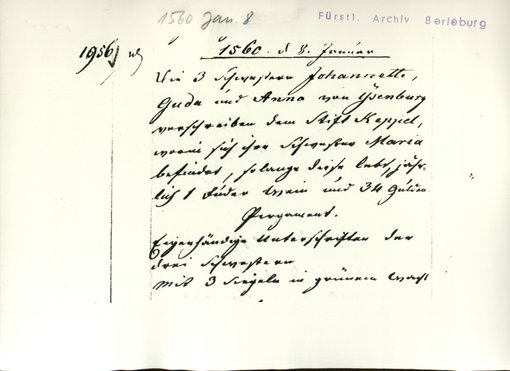 1560 Jan. 8
Fürstl. Archiv Berleburg
1956
1560. d 8. Januar
Die 3 Schwestern Johannette,
Guda und Anna von Ysenburg
verschreiben dem Stift Keppel,
worin sich ihre Schwester Maria
befindet, solange diese lebt, jähr-
lich 1 Fuder Wein und 34 Gulden
Pergament.
Eigenhändige Unterschriften der
drei Schwestern
Mit 3 Siegeln in grünem Wachs